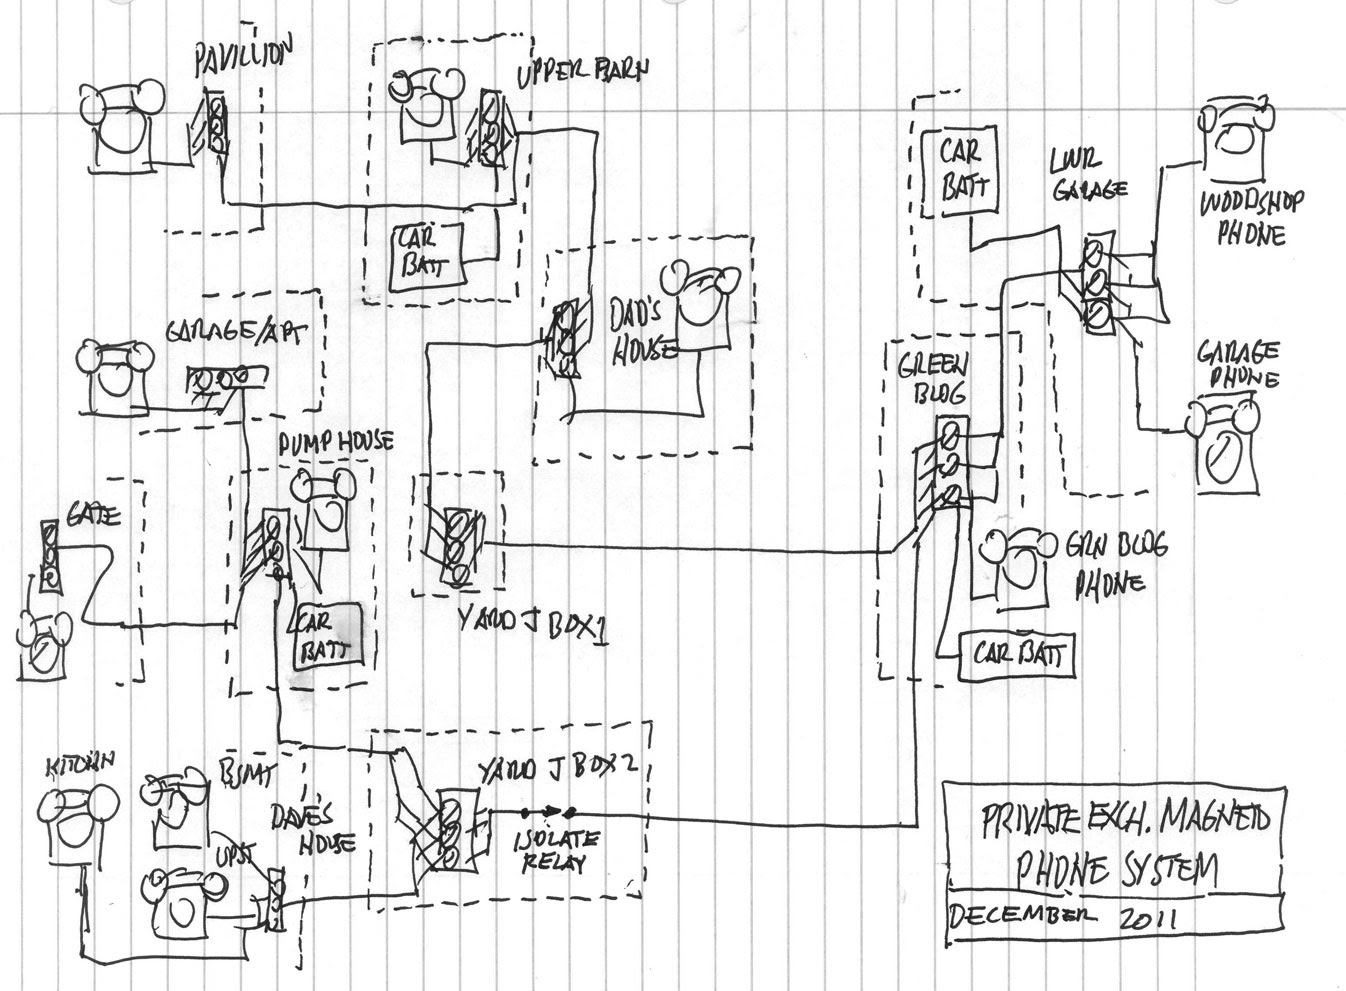 PAVILLION
UPPER BARN
CAR
BATT
CAR
BATT
LWR
GARAGE
WOODSHOP
PHONE
DAD'S
HOUSE
GARAGE/APT
GREEN
BLDG
GARAGE
PHONE
PUMP HOUSE
GATE
GRN BLDG
PHONE
CAR
BATT
YARD J BOX 1
CAR BATT
KITCHN
BSMT
YARD J BOX 2
DAVE'S
HOUSE
UPST
ISOLATE
RELAY
PRIVATE EXCH. MAGNETO
PHONE SYSTEM
DECEMBER 2011